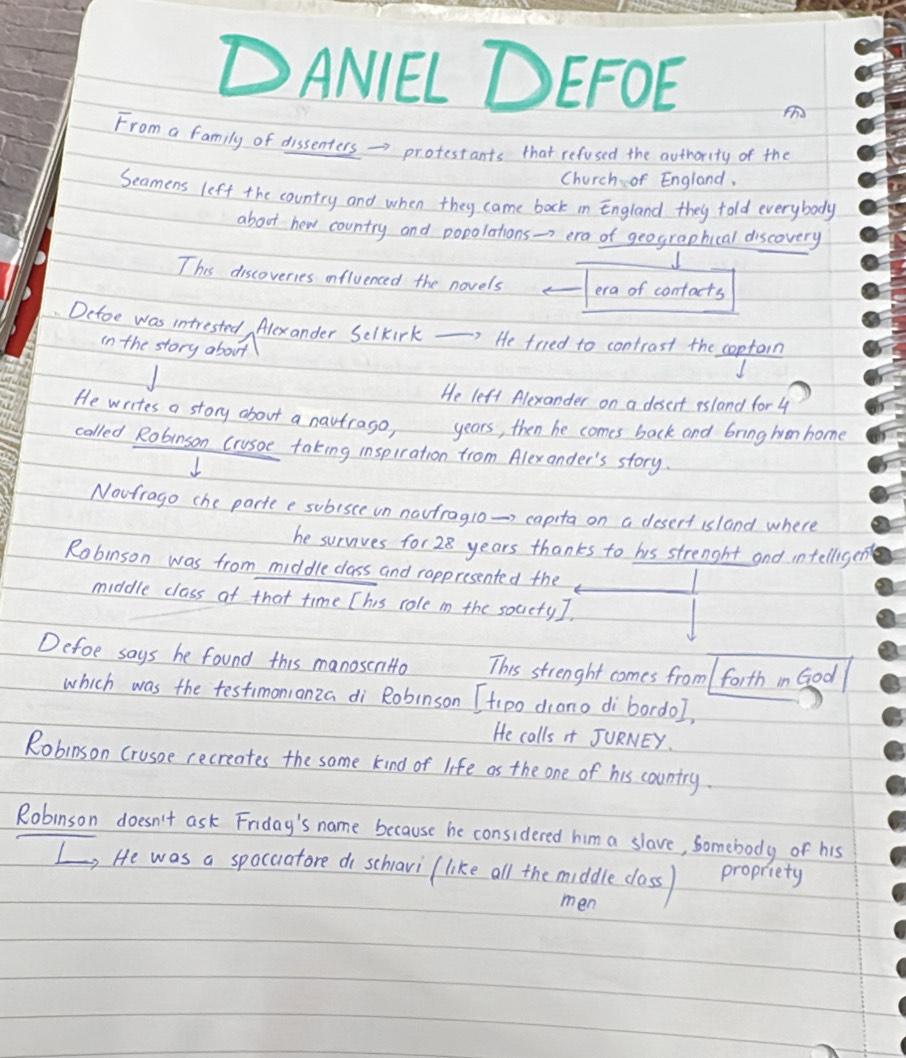 DANIEL DEFOE
From a family of dissenters → protestants that refused the authority of the
Church of England.
Seamens left the country and when they came back in England they told everybody
about new country and popolations → era of geographical discovery
↓
This discoveries influenced the novels ← era of contacts
Defoe was intrested in the story about Alexander Selkirk → He tried to contrast the captain
↓ ↓
He left Alexander on a desert island for 4
years, then he comes back and bring him home
He writes a story about a naufrago,
called Robinson Crusoe taking inspiration from Alexander's story.
↓
Naufrago che parte e subisce un naufragio → capita on a desert island where
he survives for 28 years thanks to his strenght and intelligent
Robinson was from middle class and rappresented the ←
middle class at that time [his role in the society].
↓
This strenght comes from faith in God
Defoe says he found this manoscritto
which was the testimonianza di Robinson [tipo diario di bordo],
He calls it JURNEY.
Robinson Crusoe recreates the same kind of life as the one of his country.
Robinson doesn't ask Friday's name because he considered him a slave, somebody of his
propriety
↳ He was a spacciatore di schiavi (like all the middle class)
men